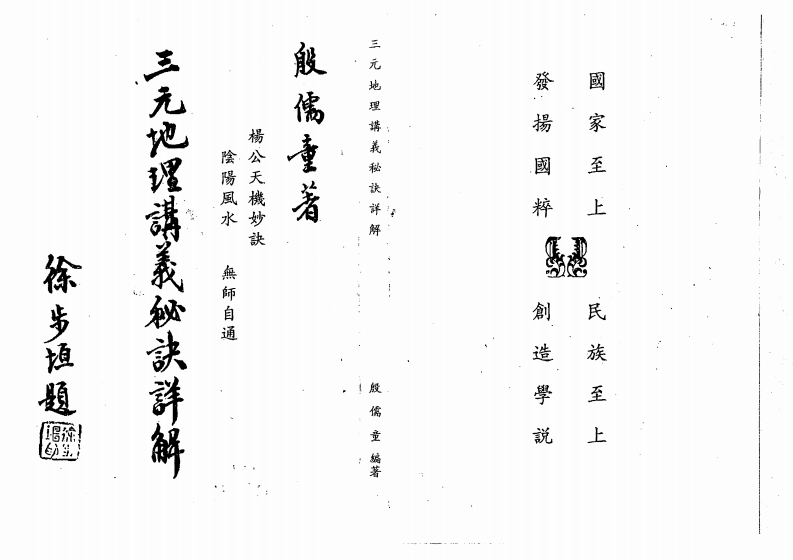 國家至上 民族至上
發揚國粹 創造學說
三元地理講義秘訣詳解 殷儒童編著
殷儒童著
楊公天機妙訣
陰陽風水 無師自通
三元地理講義秘訣詳解
徐步垣題